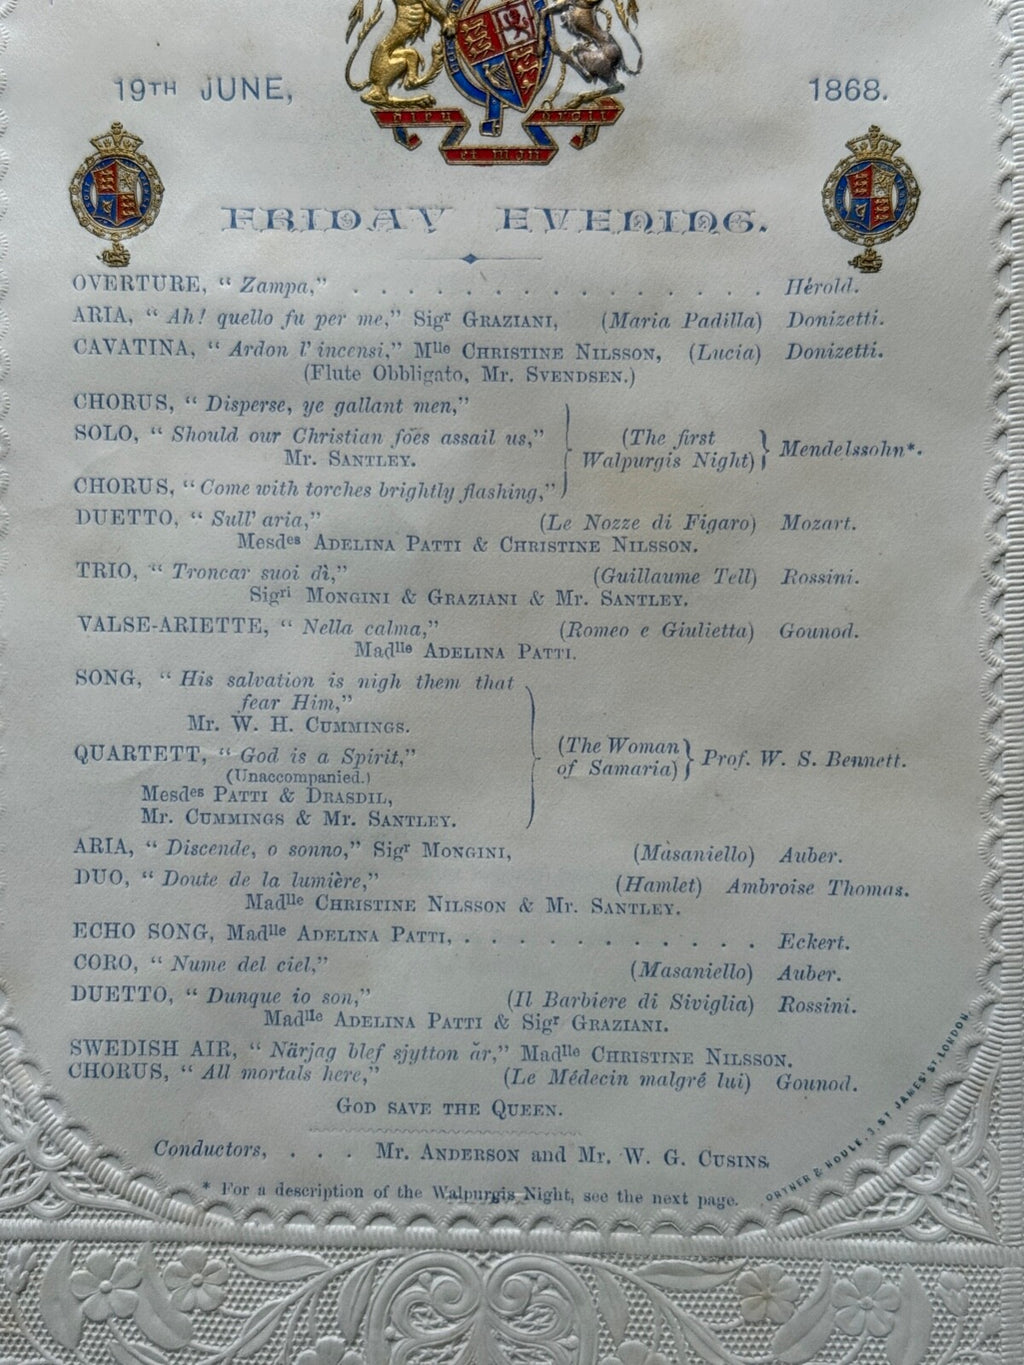 19TH JUNE, 1868.
DIEU ET MON DROIT
FRIDAY EVENING.
OVERTURE, “ Zampa,” . . . . . . . . . . . . . . . Hérold.
ARIA, “ Ah! quello fu per me,” Sigr GRAZIANI, (Maria Padilla) Donizetti.
CAVATINA, “ Ardon l’ incensi,” Mlle CHRISTINE NILSSON, (Lucia) Donizetti.
(Flute Obbligato, Mr. SVENDSEN.)
CHORUS, “ Disperse, ye gallant men,”
SOLO, “ Should our Christian foes assail us,” (The first
Mr. SANTLEY. Walpurgis Night) Mendelssohn*.
CHORUS, “ Come with torches brightly flashing,”
DUETTO, “ Sull’ aria,” (Le Nozze di Figaro) Mozart.
Mesdes ADELINA PATTI & CHRISTINE NILSSON.
TRIO, “ Troncar suoi dì,” (Guillaume Tell) Rossini.
Sigri MONGINI & GRAZIANI & Mr. SANTLEY.
VALSE-ARIETTE, “ Nella calma,” (Romeo e Giulietta) Gounod.
Madlle ADELINA PATTI.
SONG, “ His salvation is nigh them that
fear Him,”
Mr. W. H. CUMMINGS.
QUARTETT, “ God is a Spirit,” (The Woman
(Unaccompanied.) of Samaria) Prof. W. S. Bennett.
Mesdes PATTI & DRASDIL,
Mr. CUMMINGS & Mr. SANTLEY.
ARIA, “ Discende, o sonno,” Sigr MONGINI, (Masaniello) Auber.
DUO, “ Doute de la lumière,” (Hamlet) Ambroise Thomas.
Madlle CHRISTINE NILSSON & Mr. SANTLEY.
ECHO SONG, Madlle ADELINA PATTI, . . . . . . . . . . . . Eckert.
CORO, “ Nume del ciel,” (Masaniello) Auber.
DUETTO, “ Dunque io son,” (Il Barbiere di Siviglia) Rossini.
Madlle ADELINA PATTI & Sigr GRAZIANI.
SWEDISH AIR, “ Närjag blef sjytton år,” Madlle CHRISTINE NILSSON.
CHORUS, “ All mortals here,” (Le Médecin malgré lui) Gounod.
GOD SAVE THE QUEEN.
Conductors, . . . Mr. ANDERSON and Mr. W. G. CUSINS.
* For a description of the Walpurgis Night, see the next page.
ORTNER & HOULE, 3, ST JAMES' ST LONDON.